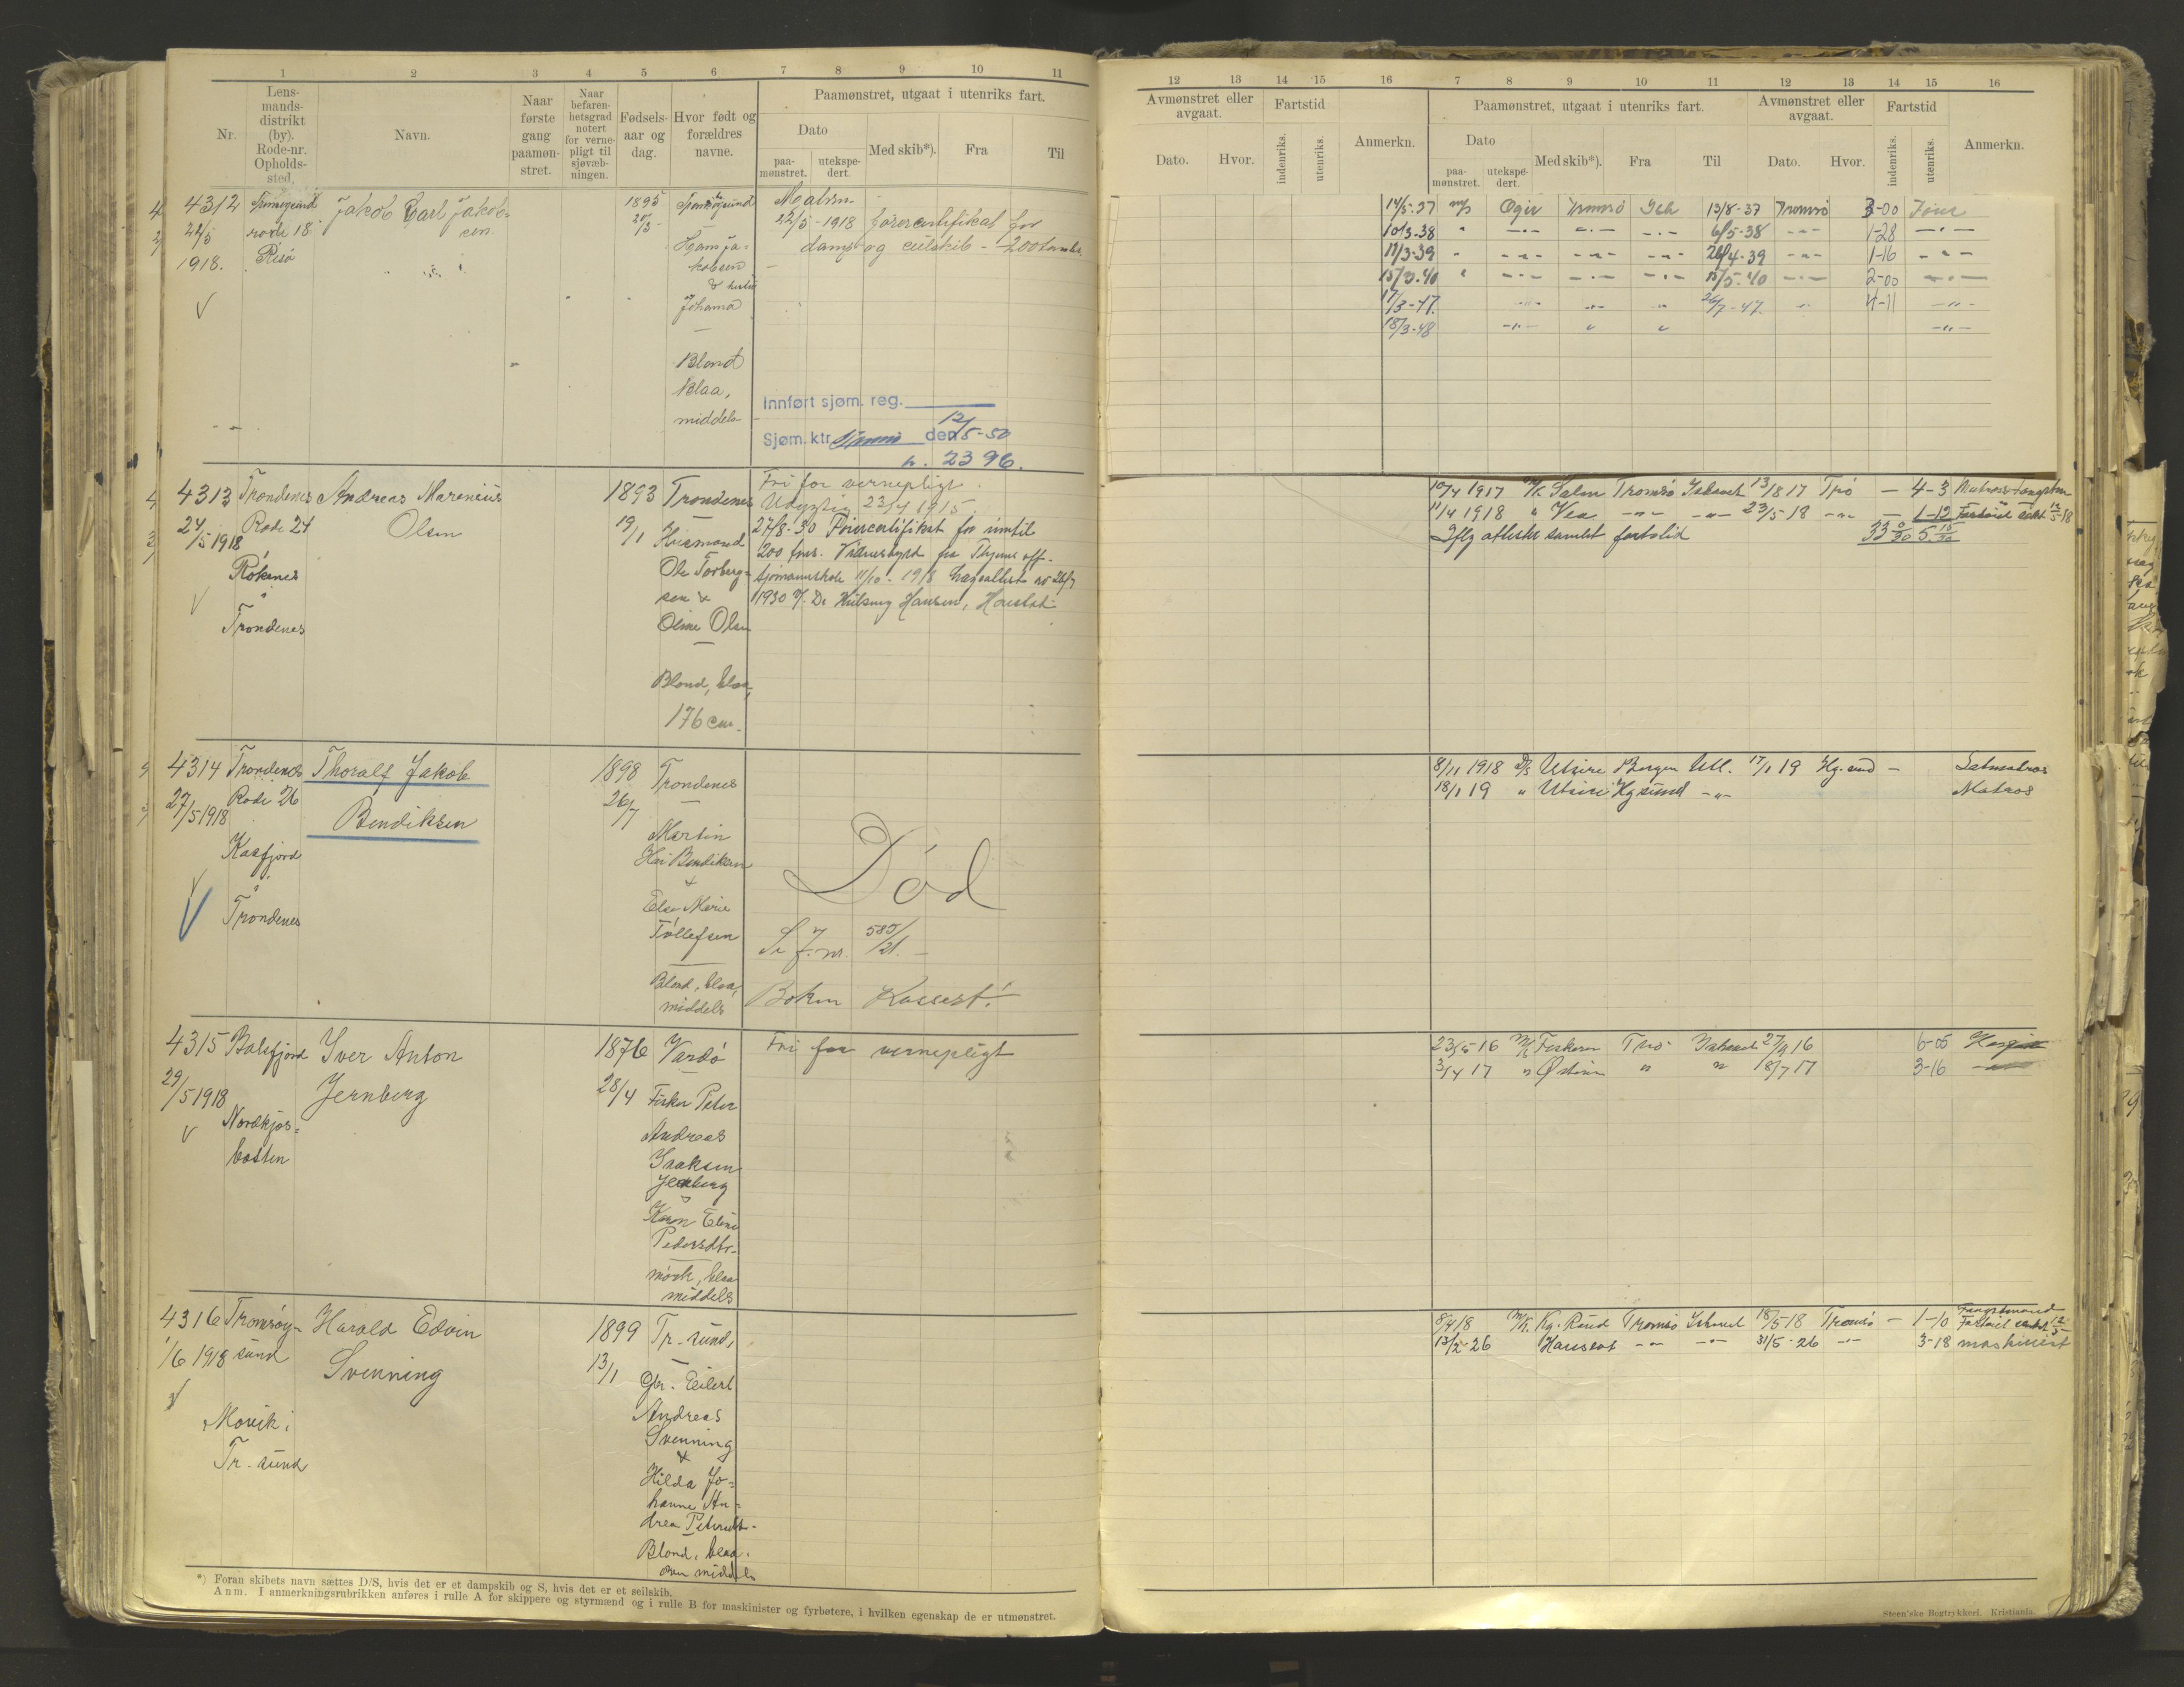 1 2 3 4 5 6 7 8 9 10 11
Nr.
Lens-
mands-
distrikt
(by).
Rode-nr.
Opholds-
sted.
Navn.
Naar
første
gang
paamøn-
stret.
Naar
befaren-
hetsgrad
notert
for verne-
pligt til
sjøvæb-
ningen.
Fødsels-
aar og
dag.
Hvor født og
forældres
navne.
Paamønstret, utgaat i utenriks fart.
Dato
paa-
mønstret.
utekspe-
dert.
Med skib*).
Fra
Til
4312
22/5
1918.
Tromsøysund
rode 18
Risø
Jakob Carl Jakob-
sen
1895
20/3
Tromsøysund
Ja-
kobsen
& hustru
Johanna
Blond
Blaa,
middels
22/5-1918 førercertifikat for
damp- og seilskib - 200 tonn
Innført sjøm. reg.
Sjøm.ktr. Tromsø den 12/5-50
n. 2396.
4313
24/5 1918
Trondenes
Rode 24
Røkenes
Trondenes
Andreas Marenius
Olsen
1893
19/1
Trondenes
Husmand
Ole Torberg-
sen &
Oline Olsen
Blond, blaa,
176 cm.
Fri for vernepligt.
Udygtig 23/4 1915
27/8-30 Førercertifikat for inntil
200 tons. Vidnesbyrd fra off.
sjømannskole 11/10-1918 Lægeattest av 26/7
1930 f. Dr. Hansen, Harstad
4314
27/5 1918
Trondenes
Rode 26
Kasfjord
Trondenes
Thoralf Jakob
Bendiksen
1898
26/7
Trondenes
Martin
Bendiksen
&
Else Marie
Tollefsen
Blond, blaa,
middels
Død
Se J.nr. 585/21.
Boken Kassert!
4315
29/5 1918
Balsfjord
Nordkjos-
botten
Iver Anton
Jernberg
1876
28/4
Vardø
Fisker Peter
Andreas
Isaksen
Jernberg
&
Karen Eline
Pedersdtr.
mørk, blaa
middels
Fri for vernepligt
4316
1/6 1918
Tromsøy-
sund
Movik i
Tr-sund
Harald Edvin
Svenning
1899
13/1
Tr-sund,
Gbr. Eilert
Andreas
Svenning
&
Hilda Jo-
hanne An-
drea
Blond, blaa.
over middels
*) Foran skibets navn sættes D/S, hvis det er et dampskib og S, hvis det er et seilskib.
Anm. I anmerkningsrubrikken anføres i rulle A for skippere og styrmænd og i rulle B for maskinister og fyrbøtere, i hvilken egenskap de er utmønstret.
12 13 14 15 16 7 8 9 10 11 12 13 14 15 16
Avmønstret eller
avgaat.
Fartstid
Dato.
Hvor.
indenriks.
utenriks.
Anmerkn.
Paamønstret, utgaat i utenriks fart.
Dato
paa-
mønstret.
utekspe-
dert.
Med skib*).
Fra
Til
Avmønstret eller
avgaat.
Dato.
Hvor.
Fartstid
indenriks.
utenriks.
Anmerkn.
14/5-37 m/s Ægir Tromsø Ish 13/8-37 Tromsø 3-00
10/3-38 " -"- -"- -"- 6/5-38 -"- 1-28 -"-
11/3-39 " -"- -"- -"- 26/4-39 -"- 1-16 -"-
15/3-40 " -"- -"- -"- 15/5-40 -"- 2-00 -"-
17/3-47. -"- -"- -"- 26/7-47. " 4-11 -"-
18/3-48 -"- " " -"-
10/4 1917 M/K. Salm Tromsø Ishavet 13/8 17 Tsø - 4-3
11/4 1918 " Vea -"- -"- 23/5-18 -"- - 1-12 Fartøiet
Iflg attester samlet fartstid 33 0/30 5. 15/30
8/11 1918 D/S Utsire Bergen Utl. 17/1 19 Hg.sund - Letmatros
18/1 19 " Utsire Hgsund -"- Matros
23/5 16 M/K Tsø Ishavet 27/9 16 6-05
3/4 17 " " " 18/7 17 3-16
8/4 18 M/K. Kg. Tromsø Ishavet 18/5-18 Tromsø - 1-10 Fangstmand
13/2-26 Hauseat -"- -"- 31/5-26 -"- 3-18 maskinist
Steen'ske Bogtrykkeri. Kristiania.